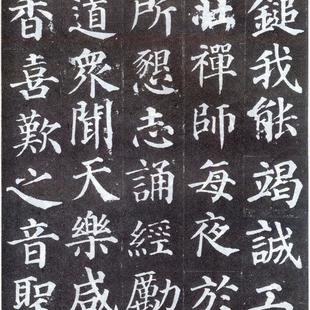 鎚我能竭誠工
壯禪師每夜於
所懇志誦經勵
道衆聞天樂咸
香喜歎之音聖